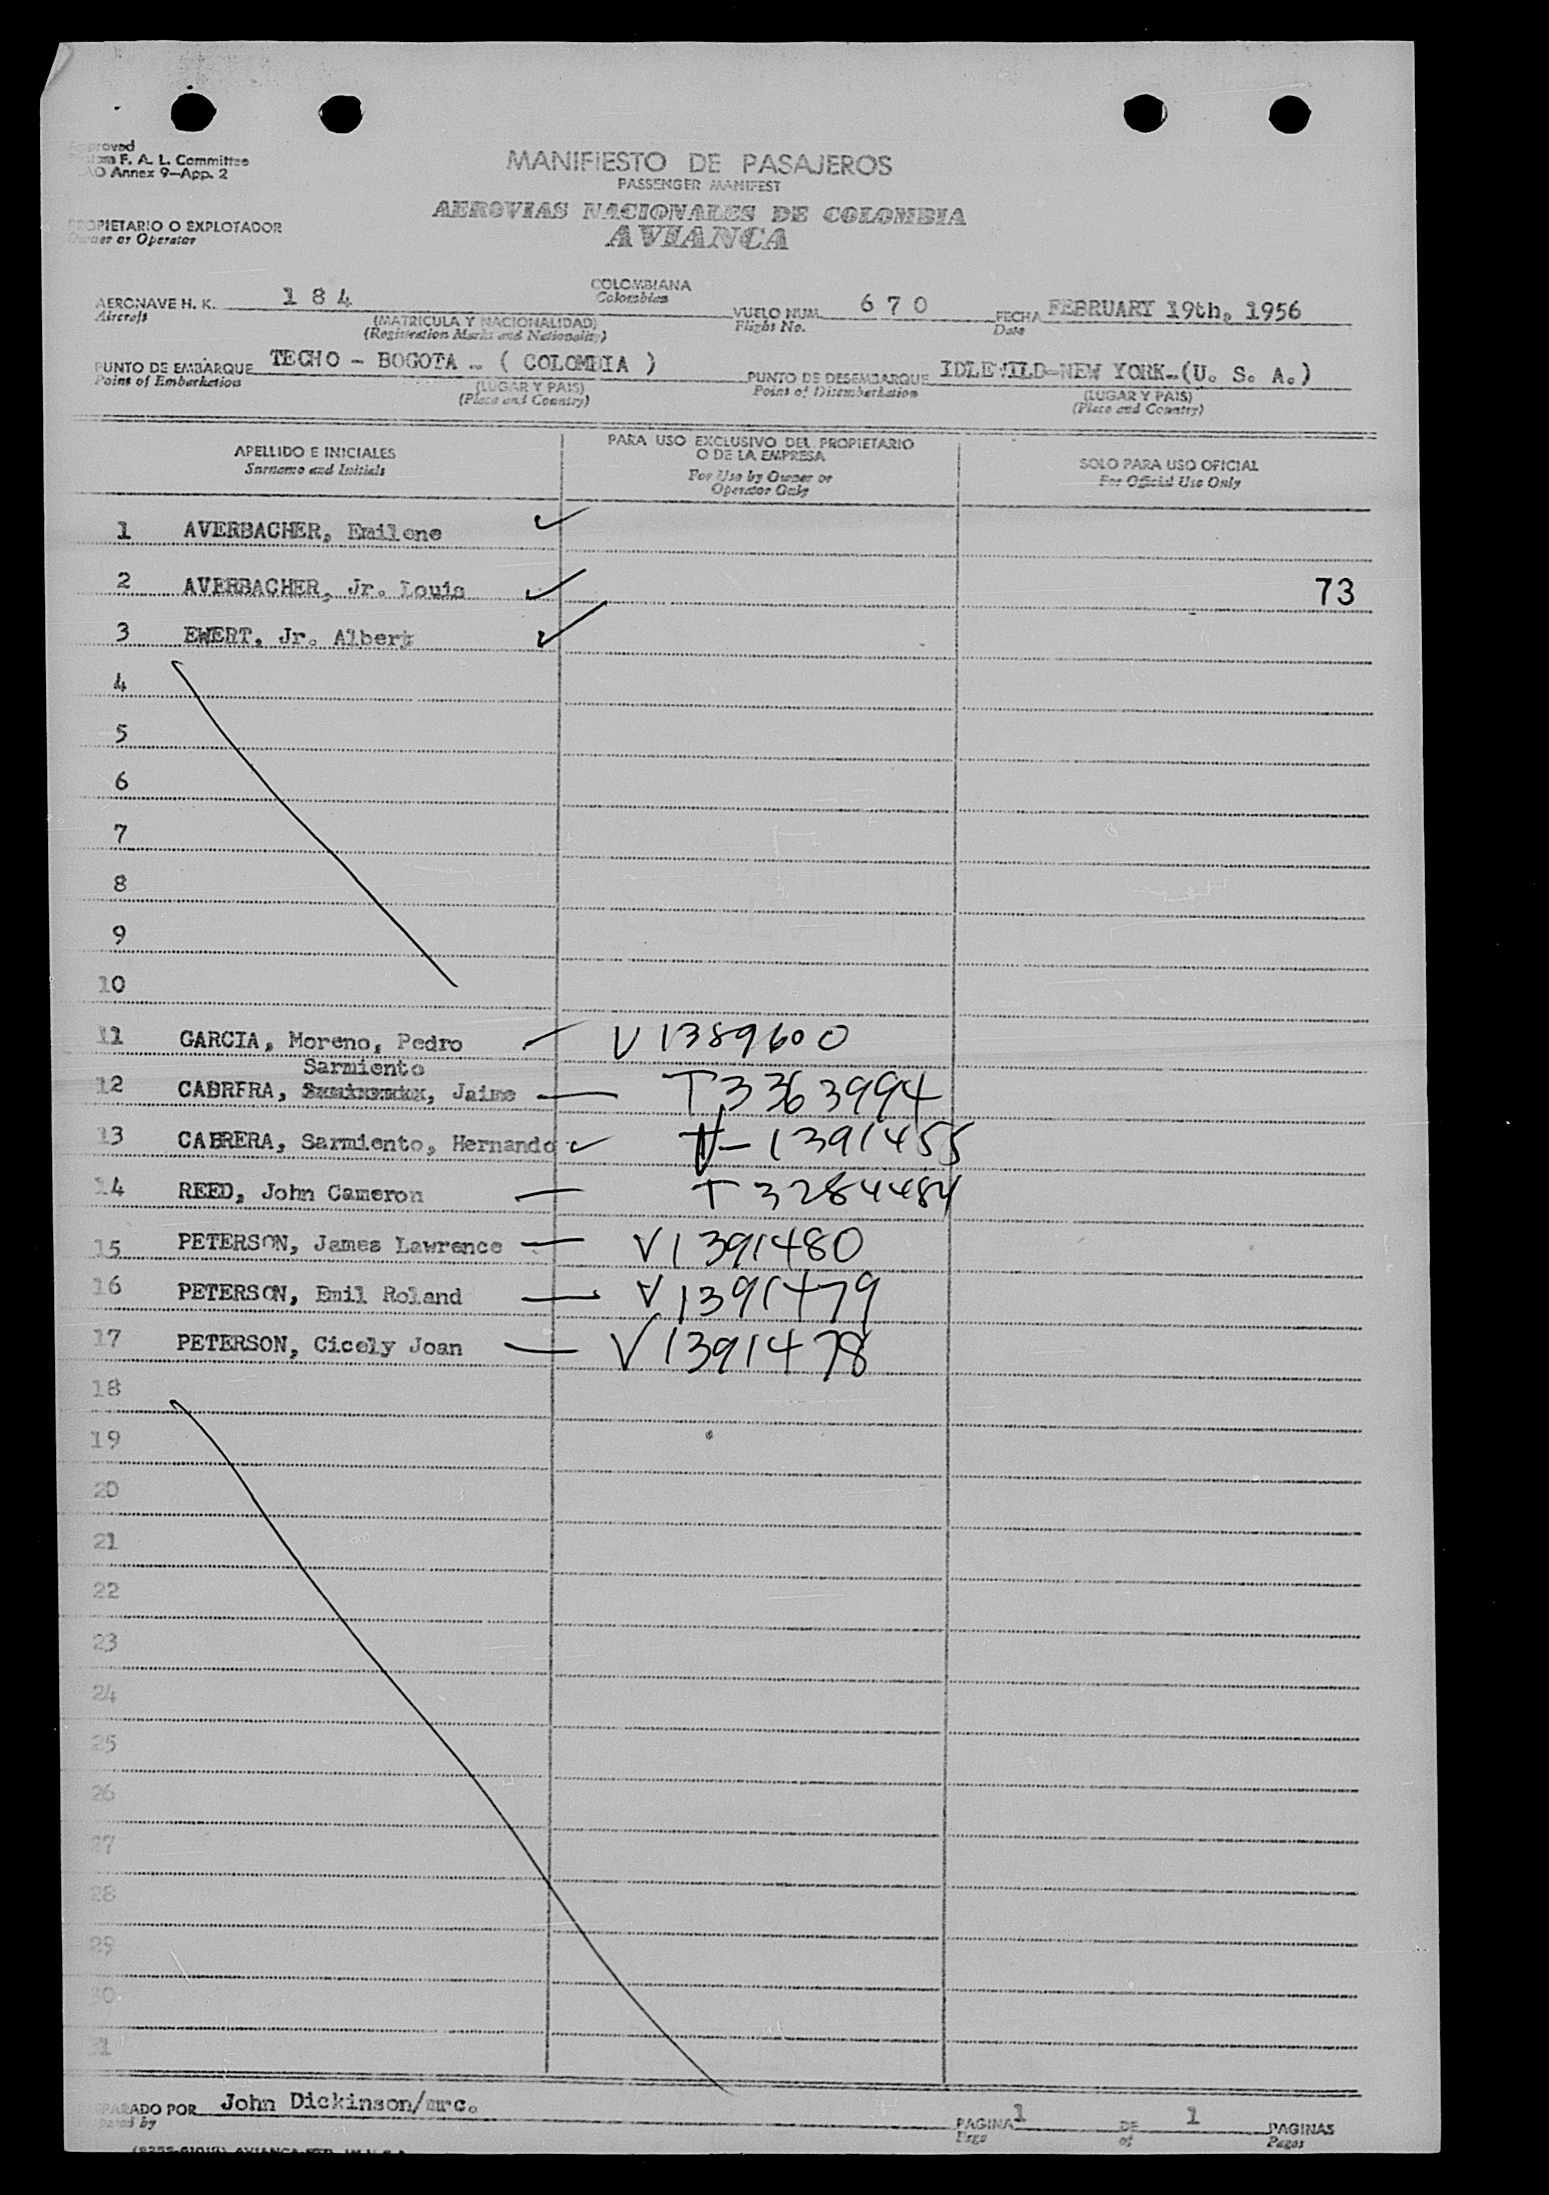 F. A. L. Committee
Annex 9-App. 2
MANIFIESTO DE PASAJEROS
PASSENGER MANIFEST
AEROVIAS NACIONALES DE COLOMBIA
AVIANCA
PROPIETARIO O EXPLOTADOR
Owner or Operator
AERONAVE H. K. 184 COLOMBIANA VUELO NUM. 670 FECHA FEBRUARY 19th, 1956
Aircraft Colombian Flight No. Date
(MATRICULA Y NACIONALIDAD)
(Registration Marks and Nationality)
PUNTO DE EMBARQUE TECHO - BOGOTA - ( COLOMBIA ) PUNTO DE DESEMBARQUE IDLEWILD-NEW YORK-(U. S. A.)
Point of Embarkation (LUGAR Y PAIS) Point of Disembarkation (LUGAR Y PAIS)
(Place and Country) (Place and Country)
APELLIDO E INICIALES PARA USO EXCLUSIVO DEL PROPIETARIO O DE LA EMPRESA SOLO PARA USO OFICIAL
Surname and Initials For Use by Owner or Operator Only For Official Use Only
1 AVERBACHER, Emilene
2 AVERBACHER, Jr. Louis 73
3 EWERT, Jr. Albert
4
5
6
7
8
9
10
11 GARCIA, Moreno, Pedro V1389600
Sarmiento
12 CABRERA, Jaime T3363994
13 CABRERA, Sarmiento, Hernando V-1391455
14 REED, John Cameron T3284484
15 PETERSON, James Lawrence V1391480
16 PETERSON, Emil Roland V1391479
17 PETERSON, Cicely Joan V1391478
18
19
20
21
22
23
24
25
26
27
28
29
30
31
PREPARADO POR John Dickinson/mrc. PAGINA 1 DE 1 PAGINAS
Prepared by Page of Pages